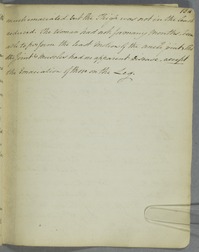 much emaciated but the Thigh was not in the least
reduced. The Woman had not for many Months been
able to perform the least motion of the
the Joint & Muscles had no apparent Disease, except
the Emaciation of those on the Leg.